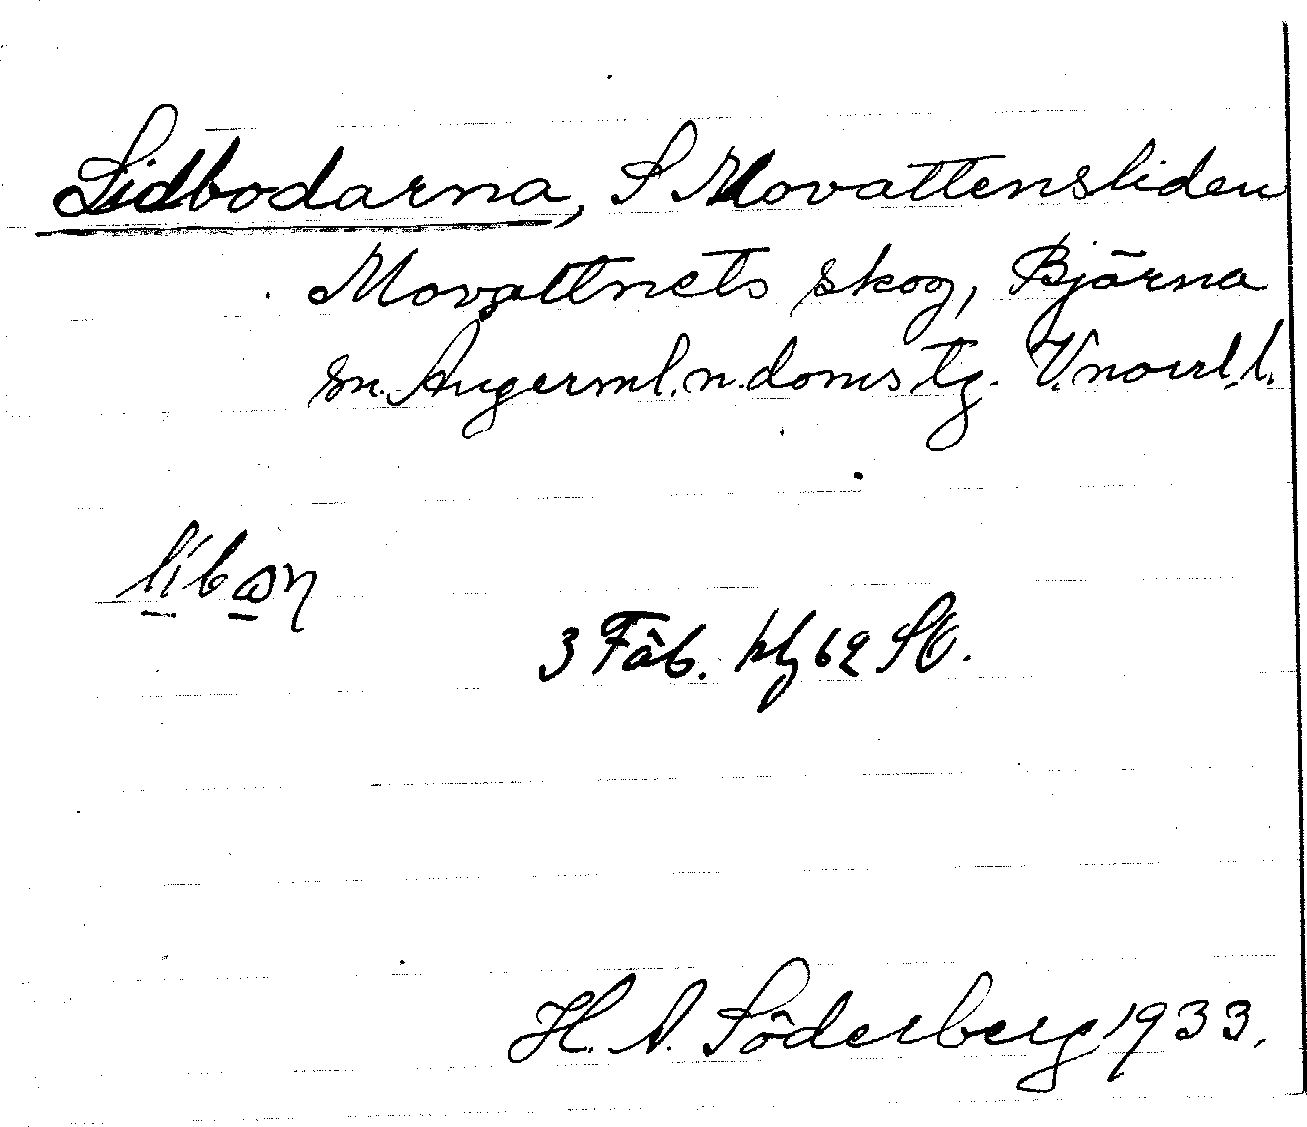 Lidbodarna, S Movattensliden
Movattnets skog, Björna
sn. Ångerml. n. doms tg. V.norrl. l.
3 Fäb. 62 SO.
H. A. Söderberg 1933.